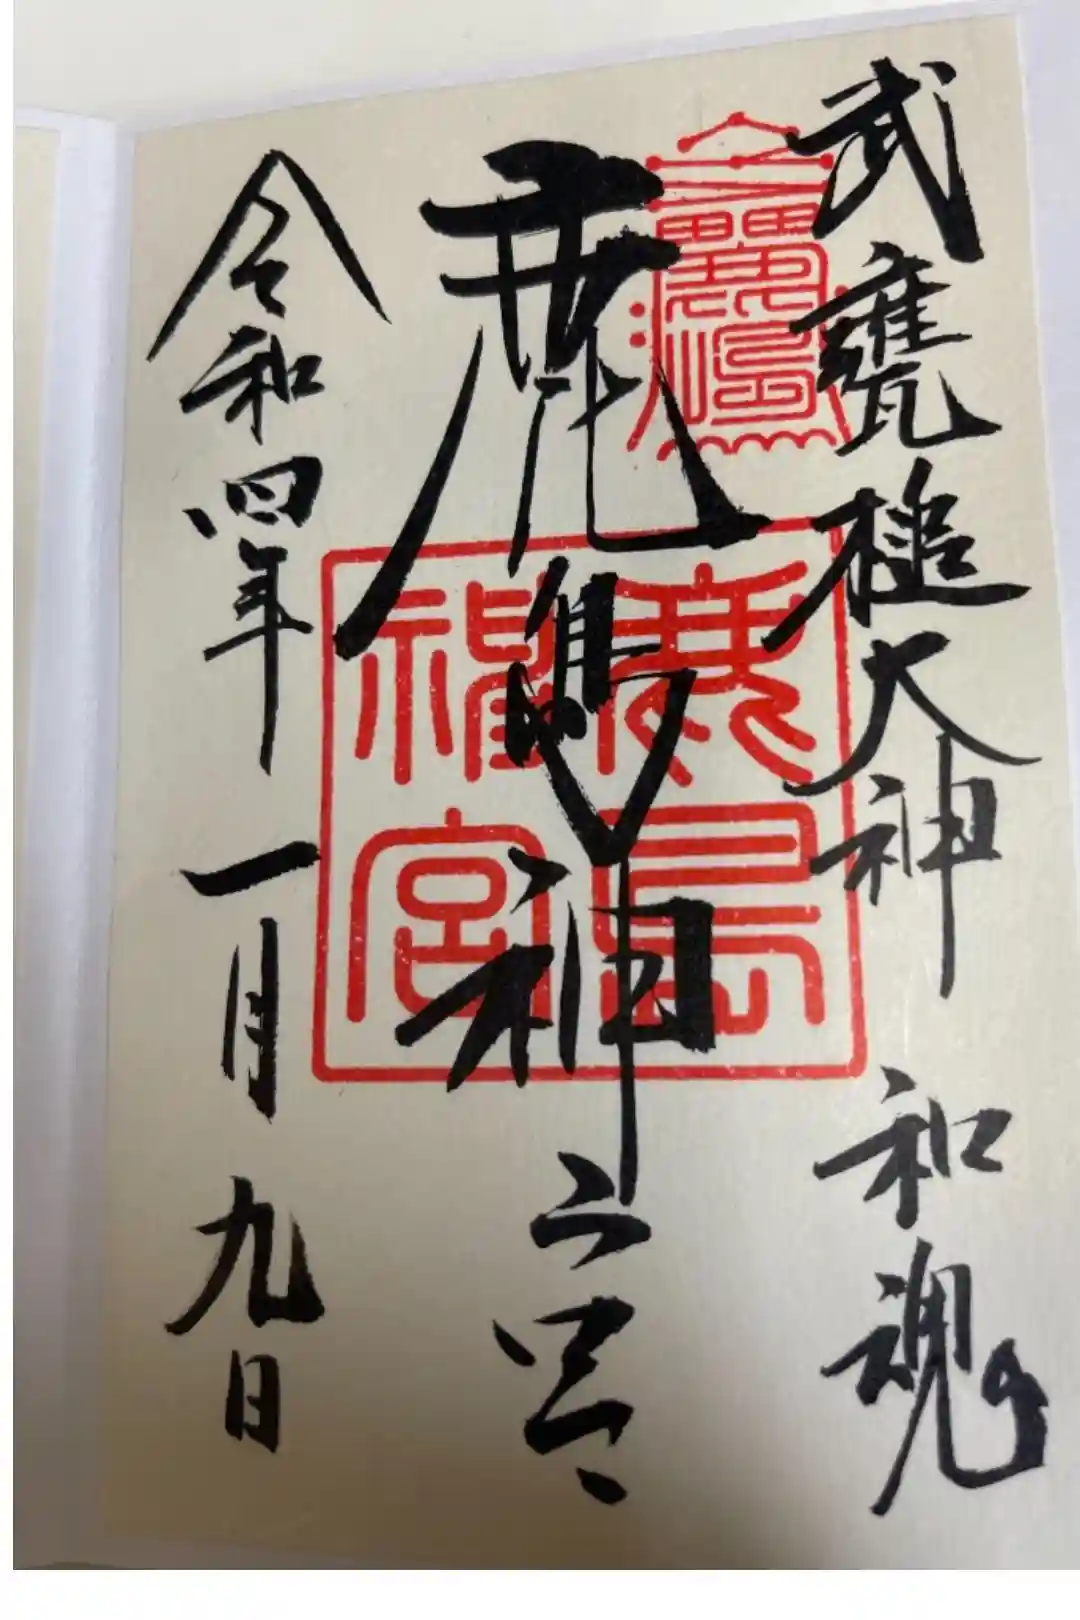 武甕槌大神 和魂
鹿嶋神宮
令和四年一月九日
鹿島
神宮